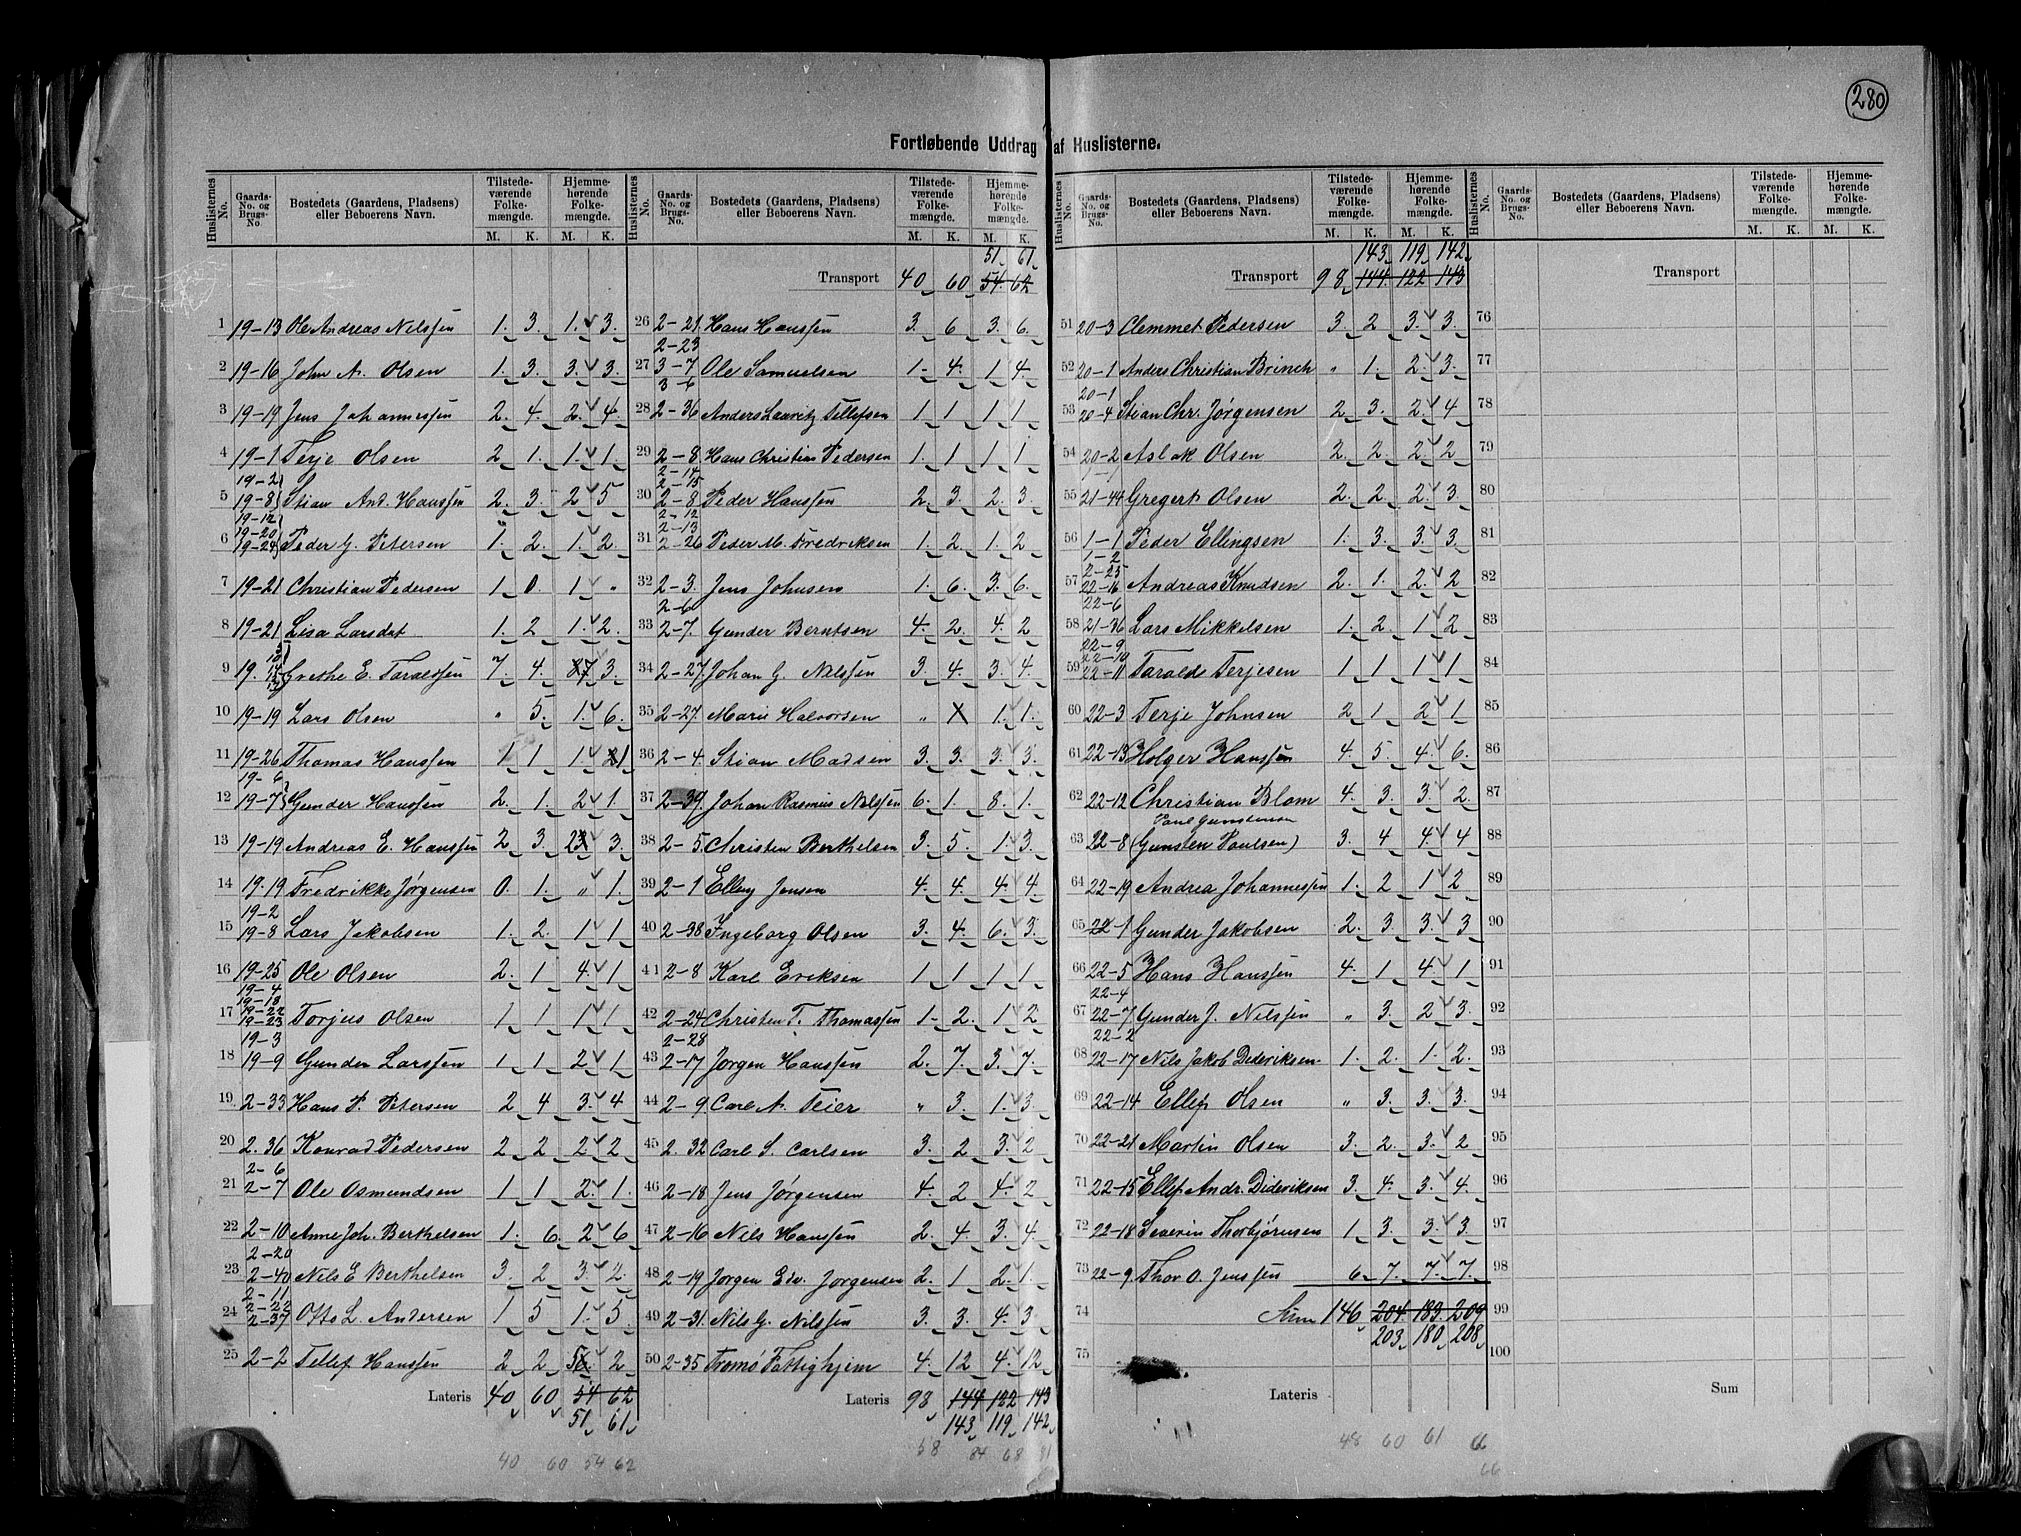 280
Fortløbende Uddrag af Huslisterne.
Huslisternes No. | Gaards-No. og Brugs-No. | Bostedets (Gaardens, Pladsens) eller Beboerens Navn. | Tilstedeværende Folkemængde. M. K. | Hjemmehørende Folkemængde. M. K.
1 19-13 Ole Andreas Nilssen 1. 3. 1. 3.
2 19-16 John A. Olsen 1. 3. 3. 3.
3 19-19 Jens Johannessen 2. 4. 2. 4.
4 19-1 Terje Olsen 2 1. 1. 1.
19-2
5 19-8 Stian And. Hanssen 2. 3. 2 5
19-12
19-20
6 19-24 Peder G. Petersen 1. 2. 1. 2.
7 19-21 Christian Pedersen 1 0. 1 "
8 19-21 Lisa Larsdat 1. 2 1. 2.
9 19. Grethe E. Taraldsen 7. 4. 7 3.
10 19-19 Lars Olsen " 5. 1. 6.
11 19-26 Thomas Hanssen 1 1 1. 1
19-6
12 19-7 Gunder Hanssen 2. 1. 2 1.
13 19-19 Andreas E. Hanssen 2 3. 2 3.
14 19.19 Fredrikke Jørgensen 0. 1. " 1.
19-2
15 19-8 Lars Jakobsen 1. 2. 1 1
16 19-25 Ole Olsen 2. 1 4. 1
19-4
19-18
19-22
17 19-23 Torjus Olsen 1 1 1 1
19-3
18 19-9 Gunder Larssen 1 1 2 1
19 2-33 Hans P. Petersen 2 4 3. 4
20 2.36 Konrad Pedersen 2 2 2 2
2-6
21 2-7 Ole Osmundsen 1 1 2. 1.
22 2-10 Anne Joh. Berthelsen 1. 6. 2 6
2-20
23 2-40 Nils E Berthelsen 3. 2 3. 2.
2-11
2-22
24 2-37 Otto L. Andersen 1 5 1. 5
25 2-2 Tellef Hanssen 2 2 5 2
Lateris 40 60 54 62
51 61
40 60 54 62
Huslisternes No. | Gaards-No. og Brugs-No. | Bostedets (Gaardens, Pladsens) eller Beboerens Navn. | Tilstedeværende Folkemængde. M. K. | Hjemmehørende Folkemængde. M. K.
51 61
Transport 40 60 54 62
26 2-21 Hans Hanssen 3. 6 3. 6.
2-23
27 3-7 Ole Samuelsen 1- 4. 1 4.
3-6
28 2-36 Anders Lauritz Tellefsen 1 1 1 1
29 2-8 Hans Christian Pedersen 1. 1 1 1
2-14
2-15
30 2-8 Peder Hanssen 2 3. 2. 3.
2-12
2-13
31 2-26 Peder M. Fredriksen 1. 2. 1. 2
32 2-3. Jens Johnsen 1. 6. 3. 6.
2-6
33 2-7. Gunder Berntsen 4. 2. 4. 2
34 2-27. Johan G. Nilssen 3. 4. 3 4.
35 2-27. Marie Halvorsen " 1. 1.
36 2-4. Stian Madsen 3. 3. 3. 3.
37 2-39. Johan Rasmus Nilssen 6. 1. 8. 1.
38 2-5. Christen Berthelsen 3. 5. 1. 3.
39 2-1 Elling Jensen 4. 4. 4. 4
40 2-38 Ingeborg Olsen 3. 4. 6. 3.
41 2-8 Karl Eriksen 1 1 1 1
42 2-24 Christen T. Thomassen 1- 2. 1 2
2-28
43 2-17 Jørgen Hanssen 2. 7. 3. 7.
44 2-9 Carl A. Feier " 3. 1. 3.
45 2.32 Carl S. Carlsen 3. 2 3. 2
46 2-18 Jens Jørgensen 4. 2 4. 2
47 2-16 Nils Hanssen 2. 4. 3 4.
48 2-19 Jørgen Edv. Jørgensen 2. 1 2. 1.
49 2-31 Nils G. Nilssen 3. 3. 4. 3
50 2-35 Tromø Fattighjem 4. 12 4. 12
Lateris 98 144 122 143
143 119 142
58 84 68 81
Huslisternes No. | Gaards-No. og Brugs-No. | Bostedets (Gaardens, Pladsens) eller Beboerens Navn. | Tilstedeværende Folkemængde. M. K. | Hjemmehørende Folkemængde. M. K.
143 119 142
Transport 98 144 122 143
51 20-3 Clemmet Pedersen 3. 2 3. 3.
52 20-1 Anders Christian Brinch " 1. 2. 3.
20-1
53 20-4 Stian Chr. Jørgensen 2 3. 2. 4
54 20-2 Aslak Olsen 2. 2. 2. 2
55 21-44 Gregert Olsen 2. 2. 2. 3.
56 1-1 Peder Ellingsen 1. 3. 3. 3.
1-2
2-25
57 22-16 Andreas Knudsen 2. 1. 2. 2
22-6
58 21-36 Lars Mikkelsen 1. 2. 1 2
22-9
22-10
59 22-11 Taralds Terjesen 1 1 1 1
60 22-3 Terje Johnsen 2 1 2 1
61 22-13 Holger Hanssen 4. 5 4. 6.
62 22-12 Christian Blom 4. 3. 3. 2.
Paul Gunstensen
63 22-8 (Gunsten Paulsen) 3. 4 4. 4
64 22-19 Andrea Johannessen 1. 2 1 2
65 22-1 Gunder Jakobsen 2. 3. 3. 3
66 22-5 Hans Hanssen 4. 1 4 1
22-4
67 22-7 Gunder J. Nilssen " 3. 2 3.
22-2
68 22-17 Nils Jakob Dideriksen 1. 2. 1. 2.
69 22-14 Ellef Olsen " 3. 3. 3.
70 22-21 Martin Olsen 3. 2. 3. 2
71 22-15 Ellef Andr. Dideriksen 3. 4. 3. 4.
72 22-18 Severin Thorbjørnsen 1 3. 3. 3.
73 22-9 Thor O. Jenssen 6. 7. 7. 7.
74 Sum 146 204 183 209
203 180 208
75
Lateris
48 60 61 66
66
Huslisternes No. | Gaards-No. og Brugs-No. | Bostedets (Gaardens, Pladsens) eller Beboerens Navn. | Tilstedeværende Folkemængde. M. K. | Hjemmehørende Folkemængde. M. K.
Transport
76
77
78
79
80
81
82
83
84
85
86
87
88
89
90
91
92
93
94
95
96
97
98
99
100
Sum